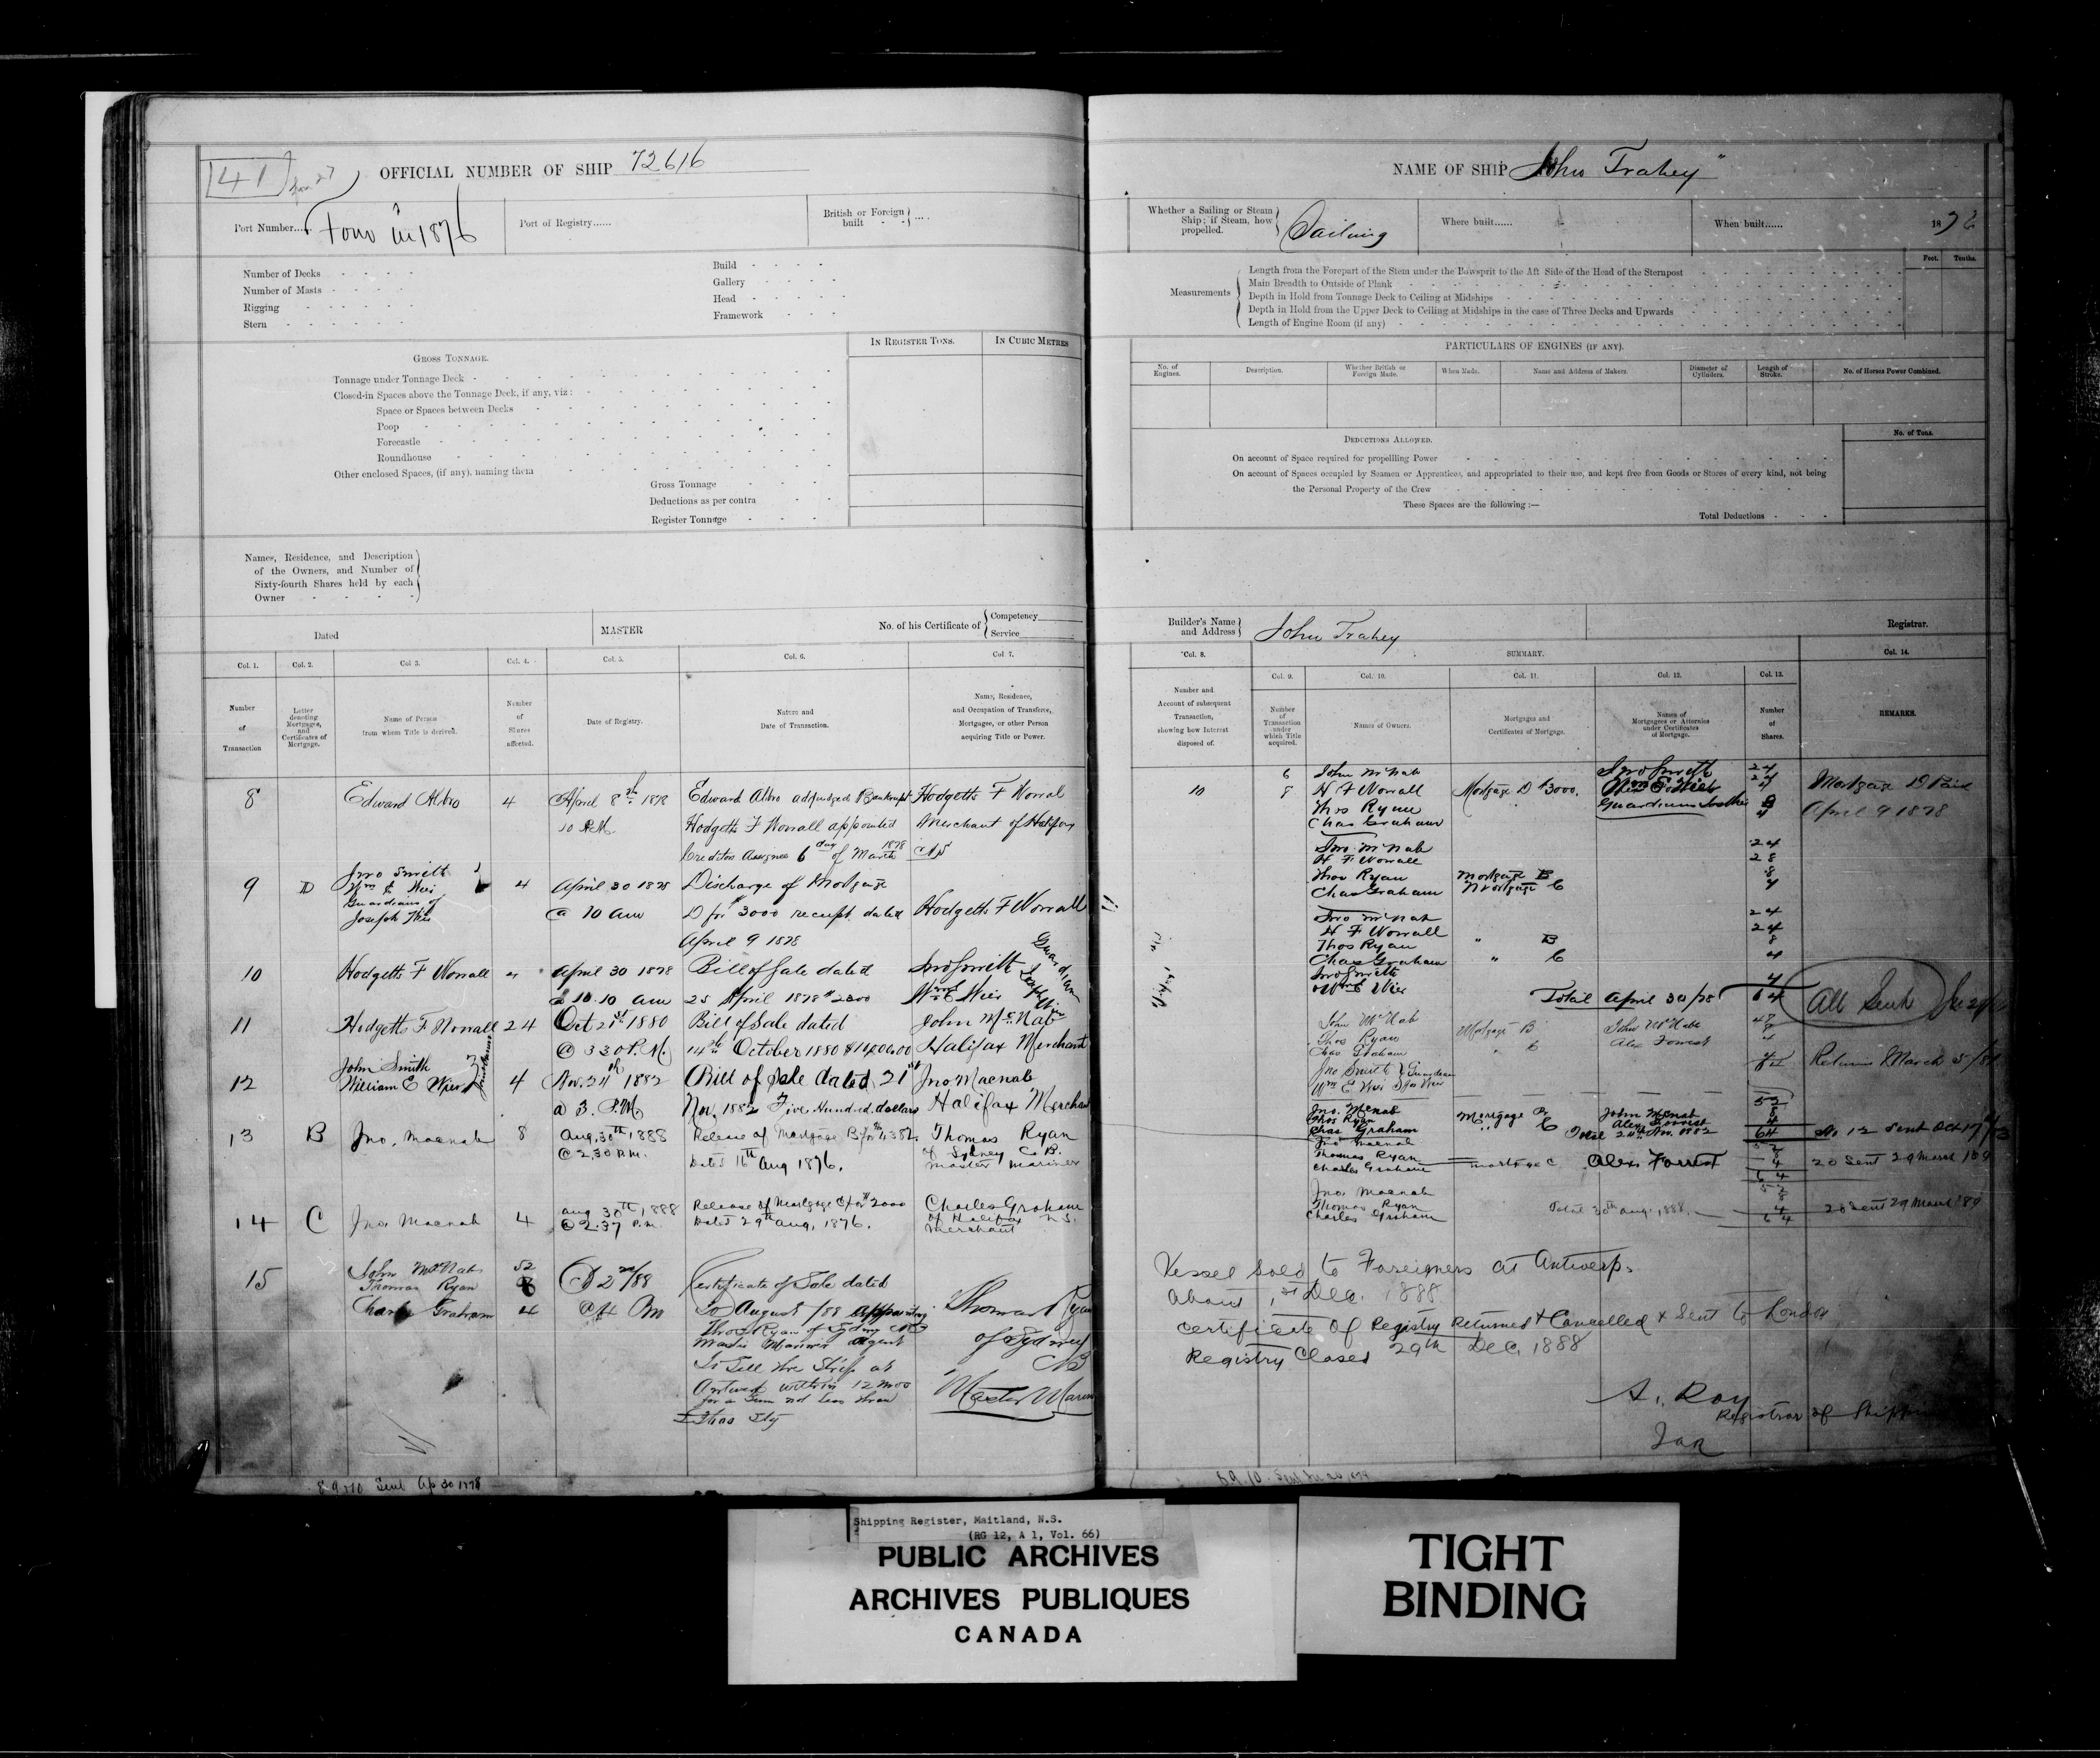 41
OFFICIAL NUMBER OF SHIP 72616
Port Number..... in 1876
Port of Registry......
British or Foreign built - - ....
Number of Decks
Number of Masts
Rigging
Stern
Build
Gallery
Head
Framework
GROSS TONNAGE.
IN REGISTER TONS.
IN CUBIC METRES
Tonnage under Tonnage Deck
Closed-in Spaces above the Tonnage Deck, if any, viz:
Space or Spaces between Decks
Poop
Forecastle
Roundhouse
Other enclosed Spaces, (if any), naming them
Gross Tonnage
Deductions as per contra
Register Tonnage
Names, Residence, and Description
of the Owners, and Number of
Sixty-fourth Shares held by each
Owner
Dated
MASTER
No. of his Certificate of { Competency
Service
Col. 1. Col. 2. Col 3. Col. 4. Col. 5. Col. 6. Col 7.
Number of Transaction
Letter denoting Mortgages, and Certificates of Mortgage.
Name of Person from whom Title is derived.
Number of Shares affected.
Date of Registry.
Nature and Date of Transaction.
Name, Residence, and Occupation of Transferee, Mortgagee, or other Person acquiring Title or Power.
8 Edward Albro 4 April 8th 1878 Edward Albro adjudged Bankrupt Hodgetts F Worral
10 A.M. Hodgetts F Worrall appointed Merchant of Halifax
Creditors Assignee 6 day of March 1878 NS
9 D Jno Smith
Wm E Wier 4 April 30 1878 Discharge of Mortgage
Guardians of
Joseph Wier @ 10 am D for $3000 receipt dated Hodgetts F Worrall
April 9 1878
10 Hodgetts F Worrall 4 April 30 1878 Bill of Sale dated Jno Smith Guardians
@ 10.10 am 25 April 1878 $2300 Wm E Wier Joseph Wier
11 Hodgetts F Worrall 24 Oct 21st 1880 Bill of Sale dated John McNab
@ 3 30 P.M. 14th October 1880 Halifax Merchant
12 John Smith
William E Wier 4 Nov. 24th 1882 Bill of Sale dated 21st Jno Macnab
@ 3. P.M. Nov. 1882 Five Hundred dollars Halifax Merchant
13 B Jno. Macnab 8 Aug. 30th 1888 Release of Mortgage B for Thomas Ryan
@ 2.30 P.M. Dated 16th Aug 1876. of Sydney C.B.
Master Mariner
14 C Jno Macnab 4 Aug 30th 1888 Release of Mortgage C for $2000 Charles Graham
@ 2.37 P.m. Dated 29th Aug, 1876. of Halifax N.S.
Merchant
15 John McNab 52
Thomas Ryan 8 88 Certificate of Sale dated
Charles Graham 4 @ 4 Pm August /88 appointing Thomas Ryan
Thos Ryan of Sydney CB of Sydney
Master Mariner Agent CB
to Sell the Ship at
Antwerp within 12 mos Master Mariner
for a Sum not less than
8 9 & 10 Sent Ap 30 1878
NAME OF SHIP "John Trahey"
Whether a Sailing or Steam Ship; if Steam, how propelled. Sailing
Where built......
When built...... 1876
Measurements
Feet. Tenths.
Length from the Forepart of the Stem under the Bowsprit to the Aft Side of the Head of the Sternpost
Main Breadth to Outside of Plank
Depth in Hold from Tonnage Deck to Ceiling at Midships
Depth in Hold from the Upper Deck to Ceiling at Midships in the case of Three Decks and Upwards
Length of Engine Room (if any)
PARTICULARS OF ENGINES (IF ANY).
No. of Engines.
Description.
Whether British or Foreign Made.
When Made.
Name and Address of Makers.
Diameter of Cylinders.
Length of Stroke.
No. of Horses Power Combined.
DEDUCTIONS ALLOWED.
No. of Tons.
On account of Space required for propellling Power
On account of Spaces occupied by Seamen or Apprentices, and appropriated to their use, and kept free from Goods or Stores of every kind, not being
the Personal Property of the Crew
These Spaces are the following :—
Total Deductions
Builder's Name and Address } John Trahey
Registrar.
Col. 8. SUMMARY. Col. 14.
Col. 9. Col. 10. Col. 11. Col. 12. Col. 13.
Number and Account of subsequent Transaction, showing how Interest disposed of.
Number of Transaction under which Title acquired.
Names of Owners.
Mortgages and Certificates of Mortgage.
Names of Mortgagees or Attornies under Certificates of Mortgage.
Number of Shares.
REMARKS.
6 John McNab Jno Smith 24
10 8 H F Worrall Mortgage D $3000. Wm E Wier 24 Mortgage D Paid
Thos Ryan 8 April 9 1878
Chas Graham 4
Jno McNab 24
H F Worrall 28
Thos Ryan Mortgage B 8
Chas Graham Mortgage C 4
Jno McNab 24
H F Worrall 24
Thos Ryan " B 8
Chas Graham " C 4
Jno Smith 4
Wm E Wier Total April 30/78 64 All Sent
John McNab 48
Thos Ryan Mortgage B John McNab 8
Chas Graham " C Alex Forrest 4
Jno Smith Guardians 4 Returns March 5/81
Wm E Wier Jos Wier
Jno. Mcnab Mortgage B John Mcnab 52
Thos Ryan " C Alex Forrest 8
Chas Graham Total 24th Nov. 1882 4
64 No 12 Sent Oct
Jno Macnab 52
Thomas Ryan 8
Charles Graham Mortgage C Alex Forrest 4 20 Sent 29 March 189
64
Jno. Macnab 52
Thomas Ryan 8
Charles Graham Total 30th Aug. 1888. 4 20 Sent 29 March '89
64
Vessel Sold to Foreigners at Antwerp.
About 1st Dec. 1888
Certificate of Registry Returned & Cancelled & Sent to London
Registry Closed 29th Dec. 1888
A. Roy
Registrar of Shipping
Shipping Register, Maitland, N.S.
(RG 12, A 1, Vol. 66)
PUBLIC ARCHIVES
ARCHIVES PUBLIQUES
CANADA
TIGHT
BINDING